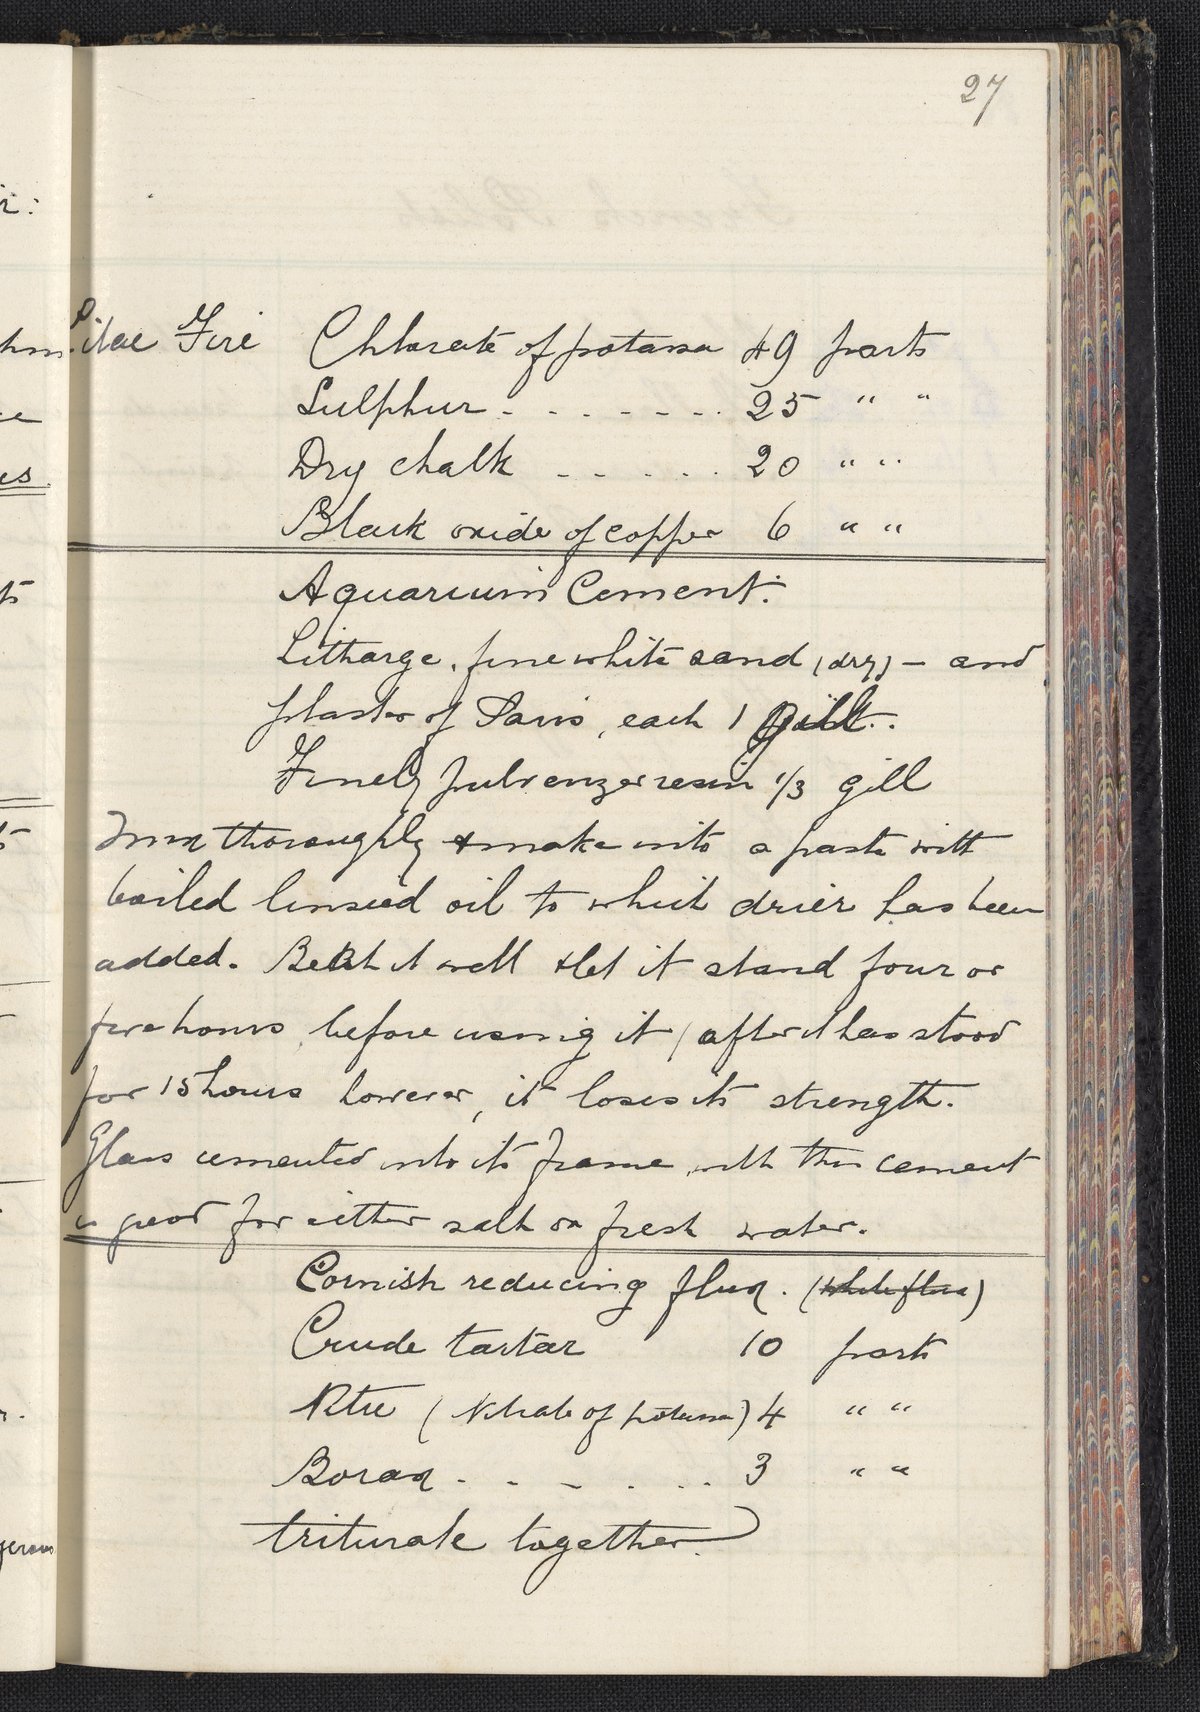 27
Lilac Fire Chlorate of potassa 49 parts
Sulphur - - - - - - - 25 " "
Dry chalk - - - - - 20 " "
Black oxide of copper 6 " "
Aquarium Cement.
Litharge, fine white sand (dry) - and
plaster of Paris, each 1 gill.
Finely pulverized resin 1/3 gill
mix thoroughly & make into a paste with
boiled linseed oil to which drier has been
added. Beat it well & let it stand four or
five hours before using it (after it has stood
for 15 hours however, it loses its strength.
Glass cemented into its frame with this cement
is good for either salt or fresh water.
Cornish reducing flux. (white flux)
Crude tartar 10 parts
Nitre (Nitrate of potassa) 4 " "
Borax - - - - - - 3 " "
triturate together.